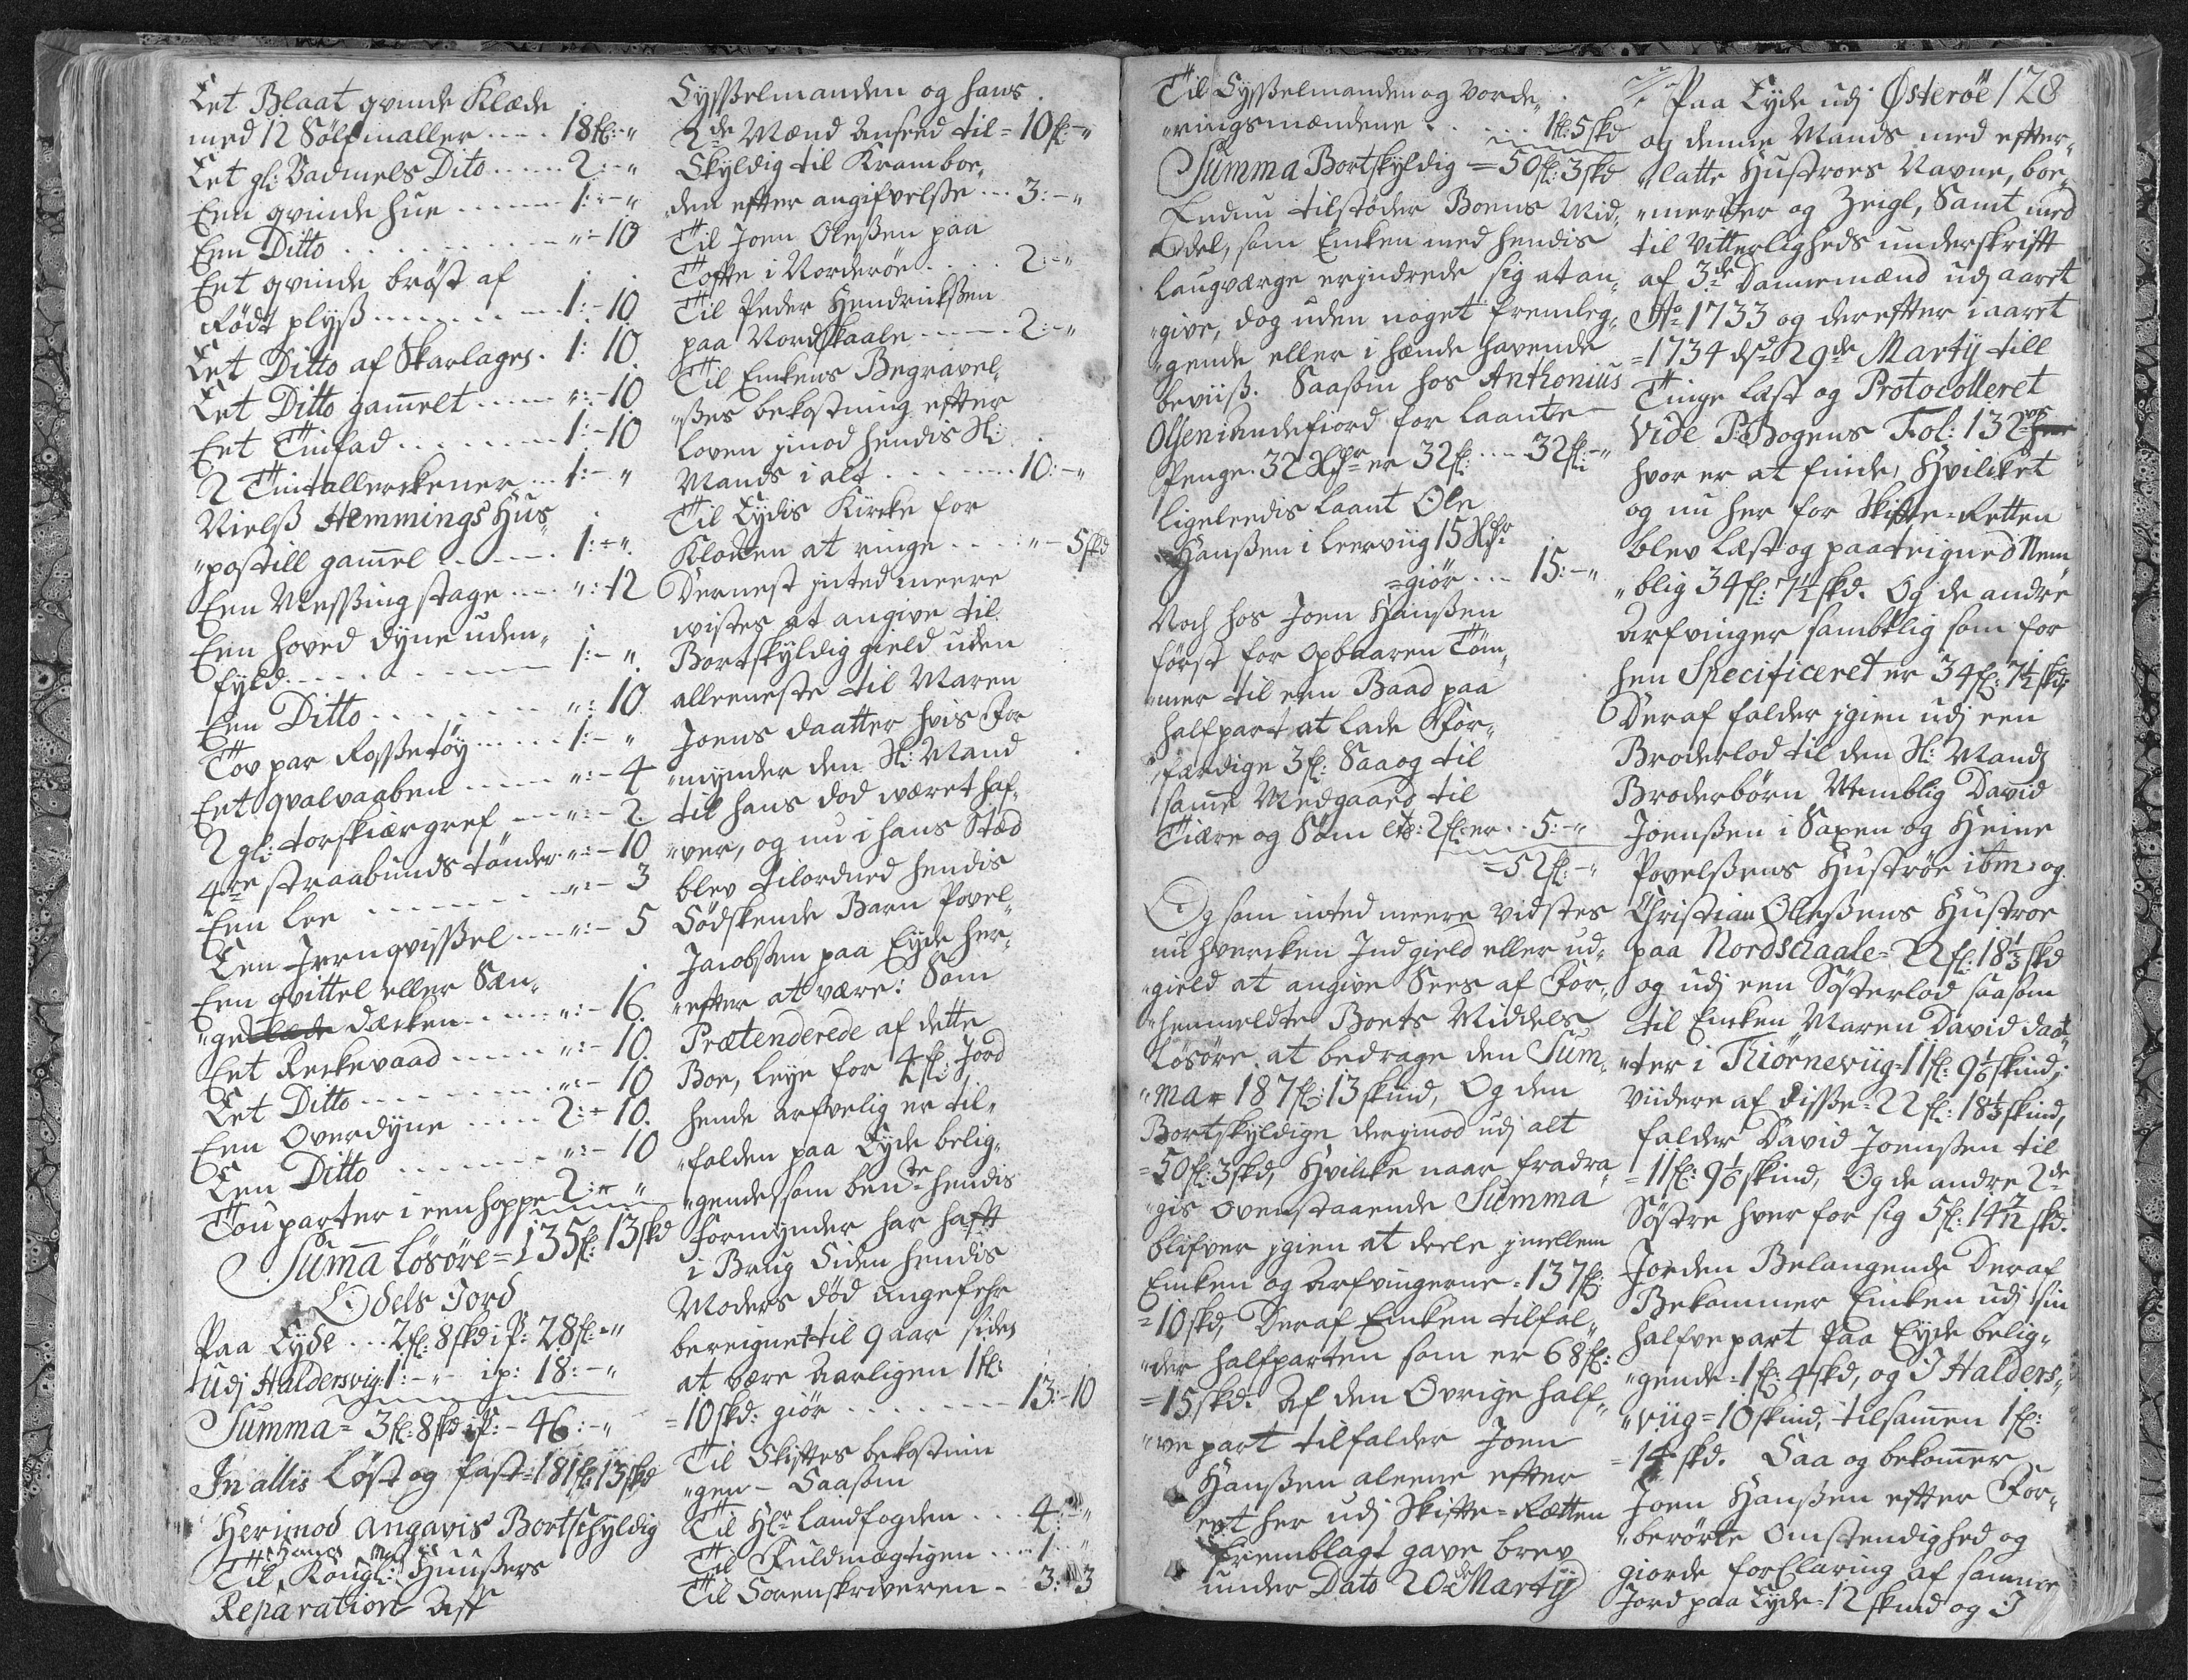 Eet Blaat qvinde Klæde
med 12 Sölfmaller .... 18fl:-"
Eet gl: Vadmels Dito ..... 2:-"
Een qvinde hue ...... 1:-"
Een Ditto ........ ":-10
Eet qvinde bröst af
Rödt plyss ....... 1:-10
Eet Ditto af Skarlagen . 1:10.
Eet Ditto gam̄elt ..... ":-10
Eet Tinfad ........ 1:-10
2 Tintallerckener ... 1:-"
Nielss Hemmings Huus¸
"postill gam̄el ...... 1:-".
Een Messing stage .... ":-12
Een hoved dyne uden¸
fyld .......... 1:-".
Een Ditto ....... ":10.
Tov par Rossetöy ..... 1:-"
Eet qvalvaaben .... ":-4
2 gl: torfskiærgref ... ":-2.
4re straabunds tönder ":-10
Een lee ........ ":-3
Een Jernqvissel .... ":-5
Een qvittel eller Sæn¸
"ge dæcken ..... ":-16.
Eet Reckevaad ..... ":-10.
Eet Ditto ....... ":-10
Een Overdyne .... 2:-10.
Een Ditto ...... ":-10
Tou parter i een hoppe 2:-"
Sum̄a Lösöre = 135fl: 13skd
Odels Jord
Paa Eyde ... 2fl: 8skd i P: 28fl:-"
Udj Haldersvig 1:-"- ip: 18:-"
Summa = 3fl: 8skd iP: - 46:-"
In allis Löst og fast = 181fl: 13skd
Herimod angavis Bortschyldig
Til Hans Kongl: May:ts Huusers
Reparation Aff
Sysselmanden og hans
2de Mænd Anseed til = 10fl:-"
Skyldig til Kramboe¸
"den efter angifvelsse ... 3:-"
Til Joen Olessen paa
Tofte i Norderöe .... 2:-"
Til Peder Hendrickssen
paa Nordskaale ..... 2:-"
Til Enckens Begravel¸
"sses bekostning efter
loven jmod hendis Sl:
Mands i alt ....... 10:-"
Til Eydis Kircke for
Klocken at ringe .... "-5skd
Dernest inted meere
vistes at angive til
Bortskyldig gield uden
alleeneste til Maren
Joens daatter hvis For
"mynder den Sl: Mand
til hans död været haf¸
"ver, og nu i hans Stæd
blev tilordned hendis
Södskende Barn Povel¸
Jacobssen paa Eyde her¸
"efter at være: Som
Prætenderede af dette
Boe, leye for 4fl: Jord
hende arfvelig er til¸
"falden paa Eyde belig¸
"gende som ben:te hendis
Formynder har hafft
i Brug Siden hendis
Moders död angefehr
bereignet til 9 aar siden
at være Aarligen 1fl:
= 10skd: giör ...... 13:-10
Til Skiftes bekostnin
"gen - Saasom
Til Hr Landfogden ... 4:-"
Til Fuldmægtigen .... 1:-"
Til Sorenskriveren - 3:-3
Til Sysselmanden og vorde¸
"ringsmændene ..... 1fl: 5skd
Summa Bortskyldig = 50fl: 3skd
Endnu tilstöder Boens Mid¸
"del, som Encken med hendis
laugværge erjndrede sig at an¸
"give, dog uden noget fremleg¸
"gende eller i hænde havende
beviiss. Saasom hos Anthonius
Olsen i Andefiord for laante
Penge. 32 Rdr er 32fl: ... 32fl:-"
ligeleedis laant Ole
Hanssen i Leerviig 15 Rdr
=giör ... 15:-"
Noch hos Joen Hanssen
först for Opbaaren Töm¸
"mer til een Baad paa
halfpart at lade For¸
"færdige 3fl: Saa og til
sam̄e Medgaard til
Tiære og Söm etc: 2fl: er .. 5:-"
=52fl:-"
Og som inted meere vidstes
nu hvercken Jndgield eller ud¸
"gield at angive Sees af For¸
"henmeldte Boets Middels
Lösöre at bedrage den Sum¸
"ma = 187fl: 13skind, Og den
Bortskyldige derjmod udj alt
=50fl: 3skd, Hvilcke naar fradra¸
"gis ovenstaaende Summa
blifver jgien at deele jmellem
Encken og Arfvingerne = 137fl:
=10skd, Deraf Encken tilfal¸
"der halfparten som er 68fl:
=15skd: Af den Övrige half¸
"ve part tilfalder Joen
Hanssen aleene efter
eet her udj Skifte=Rætten
fremblagt gave brev
under Dato 20de Martij
Paa Eyde udj Österöe 128
og denne Mands med efter¸
"latte Hustroes Navne, boe¸
"mercker og Zeigl, Samt med
til Vitterligheds underskrifft
af 3de Dannemænd udj aaret
Ao 1733 og derefter i aaret
=1734 ds: 29de Martij till
Tinge læst og Protocolleret
Vide P: Bogens Fol: 132
hvor er at finde, Hvilcket
og nu her for Skifte=Retten
blev læst og paateigned Nem¸
"blig 34fl: 7½skd. Og de andre
Arfvinger sambtlig som for
hen Specificeret er 34fl: 7½skd:
Deraf falder jgien udj een
Broderlod til den Sl: Mands
Broderbörn Nemblig David
Joenssen i Saxen og Heine
Povelssens Huströe ibm: og
Christian Olessens Hustroe
paa Nordschaale = 22fl: 18⅓skd
og udj een Sösterlod saasom
til Encken Maren David daat¸
"ter i Thiörneviig = 11fl: 9⅙skind,
Viidere af disse = 22fl: 18⅓skind,
falder David Joenssen til
=11fl: 9⅙skind, Og de andre 2de
Söstre hver for sig 5fl: 14 7/12skd.
Jorden Belangende Deraf
Bekommer Encken udj sin
halfve part Paa Eyde belig¸
"gende = 1fl: 4skd, og I Halders¸
"viig = 10skind, tilsam̄en 1fl:
=14skd. Saa og bekom̄er
Joen Hanssen efter For¸
"berörte Omstendighed og
giorde forClaring af samme
Jord paa Eyde = 12skind og I